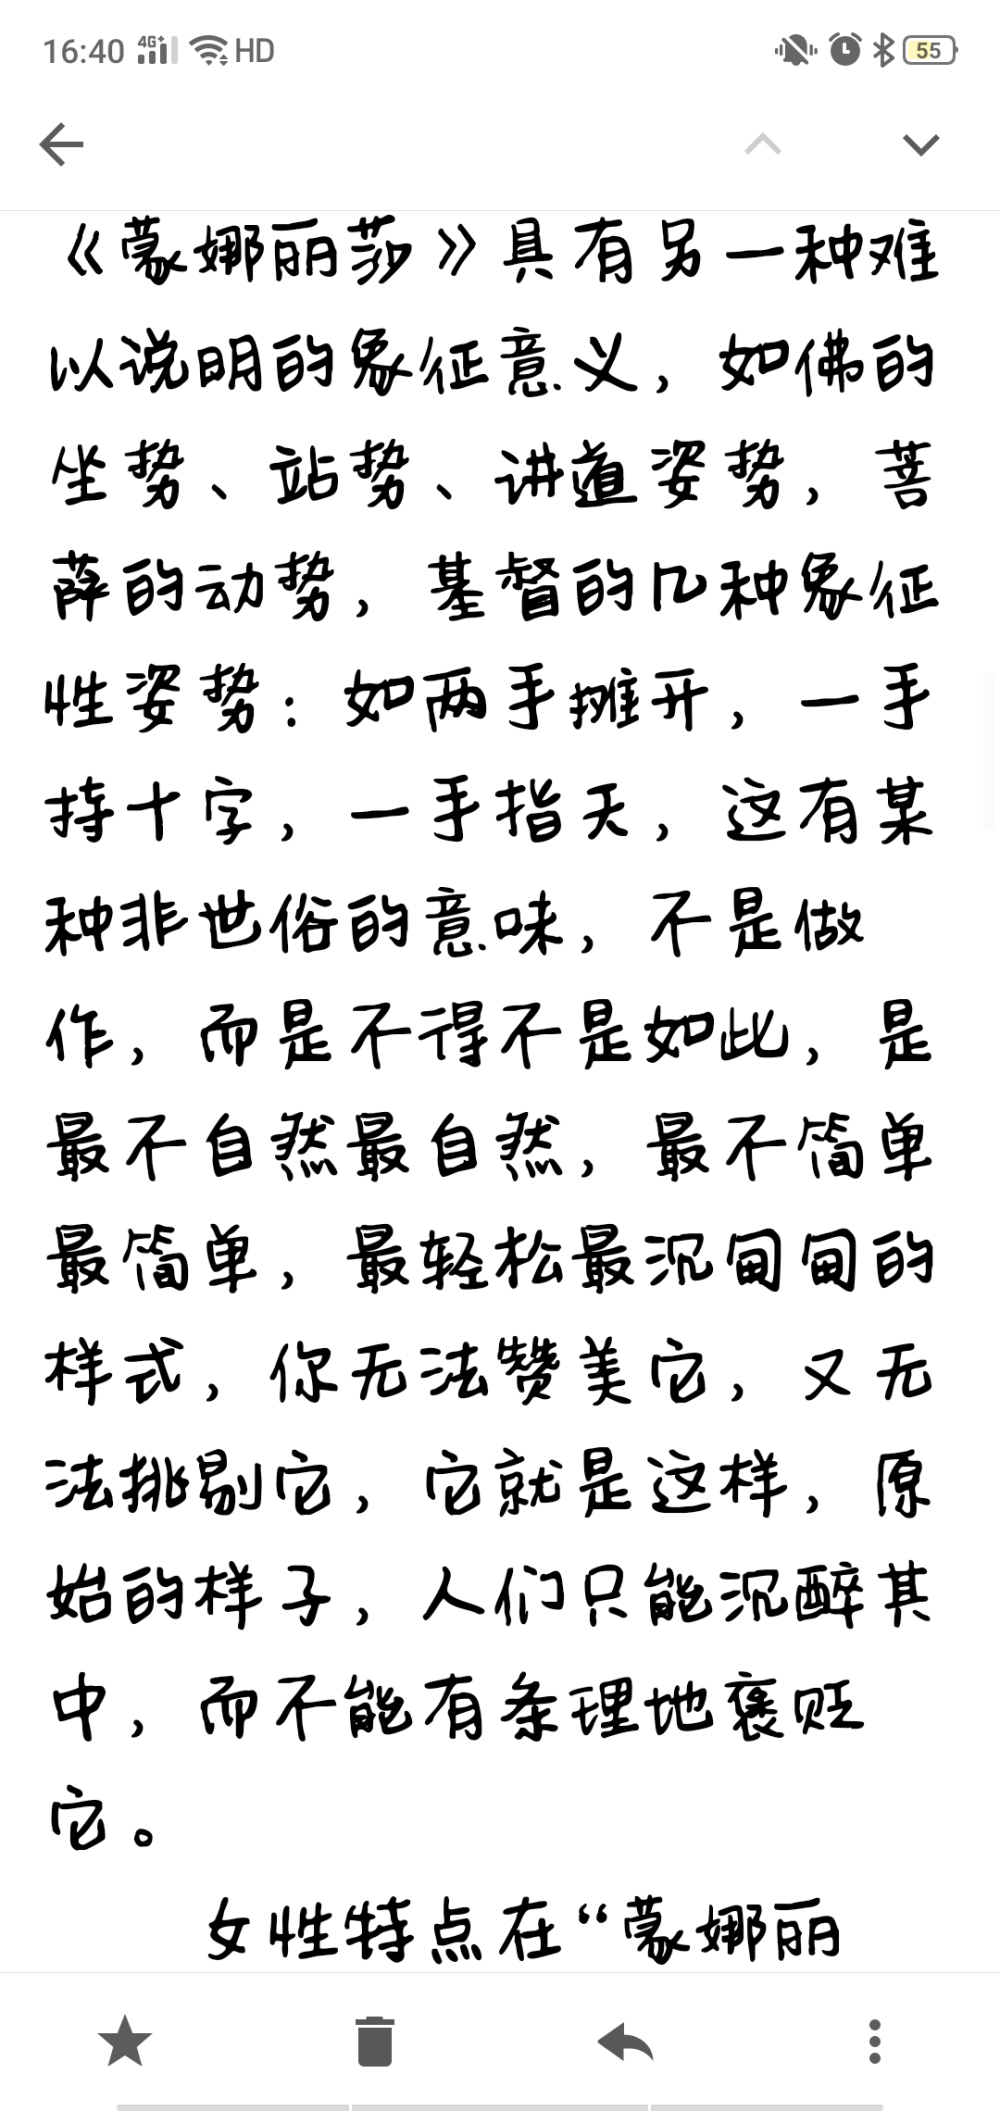 16:40 4G+ HD 55
《蒙娜丽莎》具有另一种难
以说明的象征意义，如佛的
坐势、站势、讲道姿势，菩
萨的动势，基督的几种象征
性姿势：如两手摊开，一手
持十字，一手指天，这有某
种非世俗的意味，不是做
作，而是不得不是如此，是
最不自然最自然，最不简单
最简单，最轻松最沉甸甸的
样式，你无法赞美它，又无
法挑剔它，它就是这样，原
始的样子，人们只能沉醉其
中，而不能有条理地褒贬
它。
女性特点在“蒙娜丽